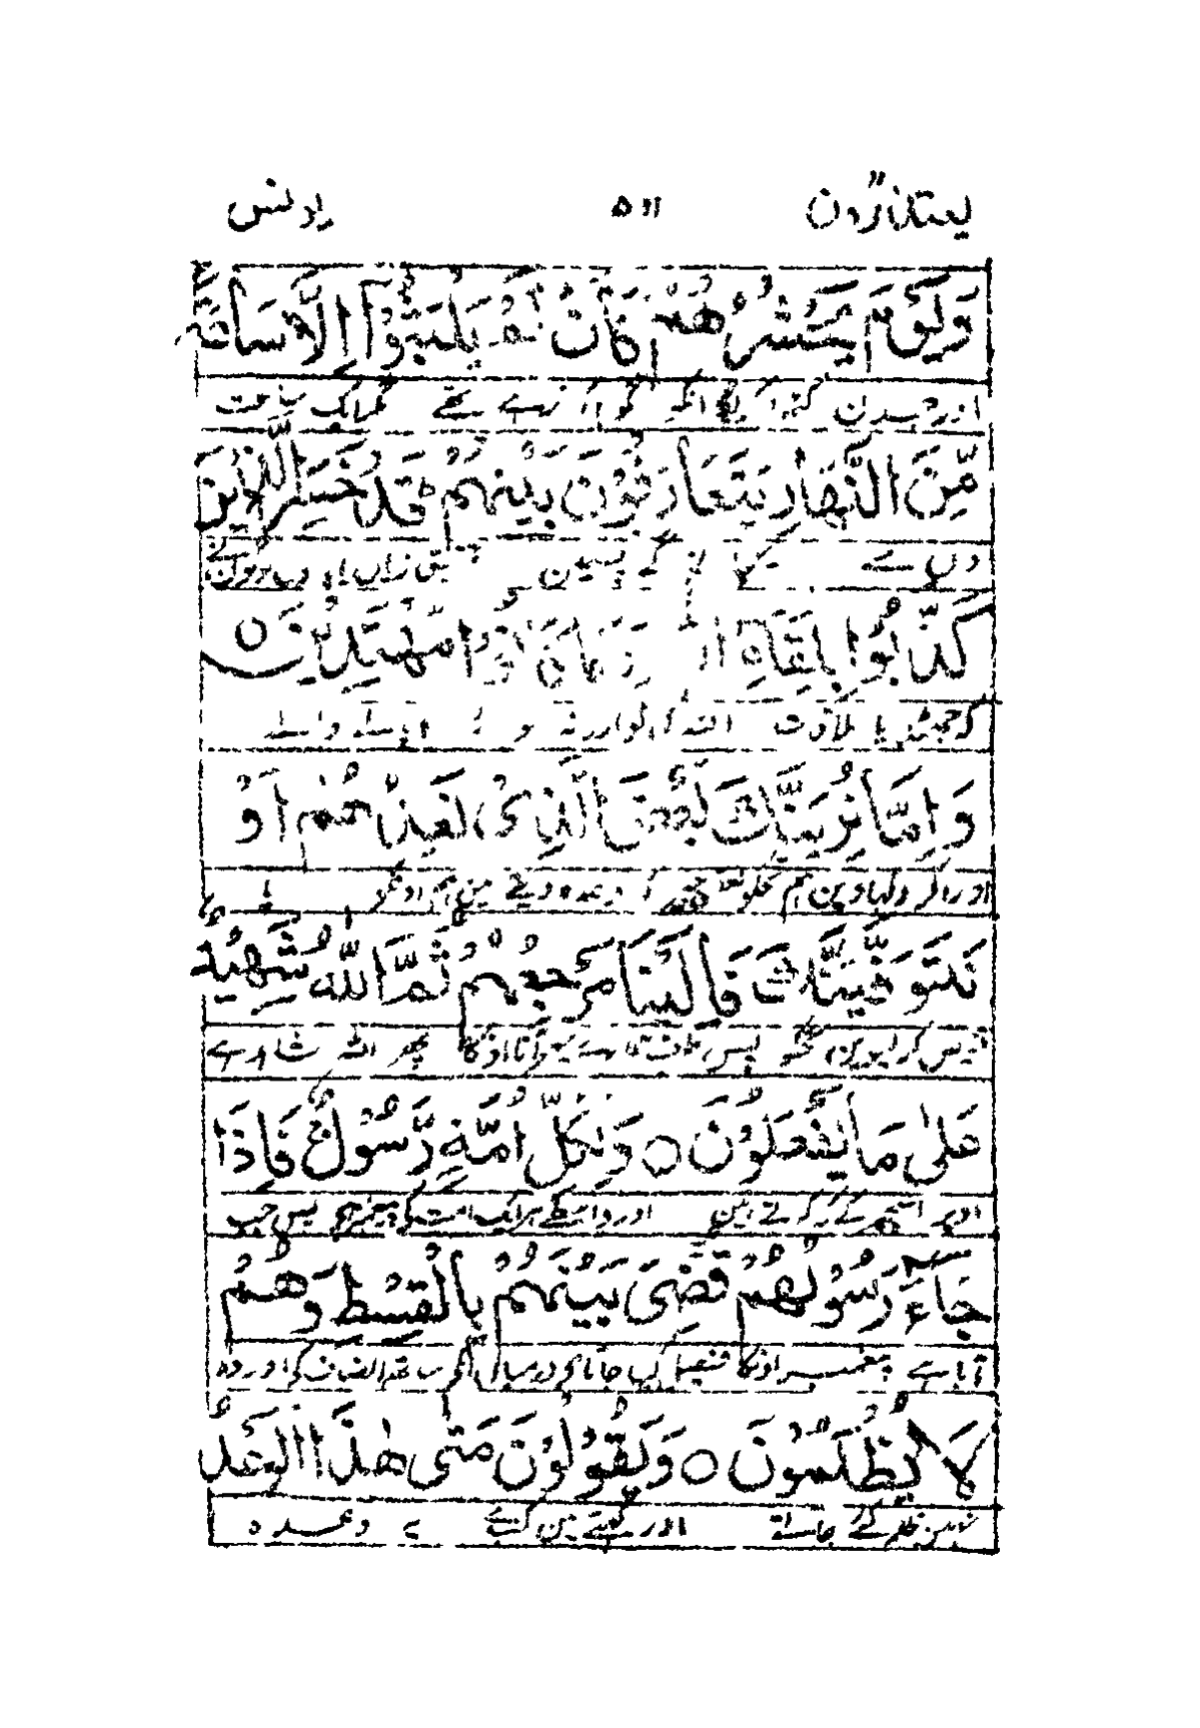 یعتذرون ۵۱۱ یونس
وَيَوْمَ يَحْشُرُهُمْ كَأَنْ لَمْ يَلْبَثُوْٓا اِلَّا سَاعَةً
اور دن اکٹھا کریگا انکو گویا نہ رہے تھے مگر ایک ساعت
مِّنَ النَّهَارِ يَتَعَارَفُوْنَ بَيْنَهُمْ قَدْ خَسِرَ الَّذِيْنَ
دن سے
كَذَّبُوْا بِلِقَآءِ اللّٰهِ وَمَا كَانُوْا مُهْتَدِيْنَ ○
ملاقات اللہ کی اور نہ واسطے
وَاِمَّا نُرِيَنَّكَ بَعْضَ الَّذِىْ نَعِدُهُمْ اَوْ
اور اگر دکھاوین ہم تجکو بعضے وعدہ دیتے ہین ہم اونکو یا
نَتَوَفَّيَنَّكَ فَاِلَيْنَا مَرْجِعُهُمْ ثُمَّ اللّٰهُ شَهِيْدٌ
قبض کر لیوین تجکو پس طرف ہمارے ہے پھر آنا اونکا پھر اللہ شاہد ہے
عَلٰى مَا يَفْعَلُوْنَ ○ وَلِكُلِّ اُمَّةٍ رَّسُوْلٌ فَاِذَا
اوپر اسچیز کے کہ کرتے ہین اور واسطے ہر ایک امت کے پیغمبر ہے پس جب
جَآءَ رَسُوْلُهُمْ قُضِىَ بَيْنَهُمْ بِالْقِسْطِ وَهُمْ
آتا ہے پیغمبر اونکا فیصل کیا جاتا ہے درمیان اونکے ساتھ انصاف کے اور وہ
لَا يُظْلَمُوْنَ ○ وَيَقُوْلُوْنَ مَتٰى هٰذَا الْوَعْدُ
نہین ظلم کئے جاتے اور کہتے ہین کب ہے وعدہ